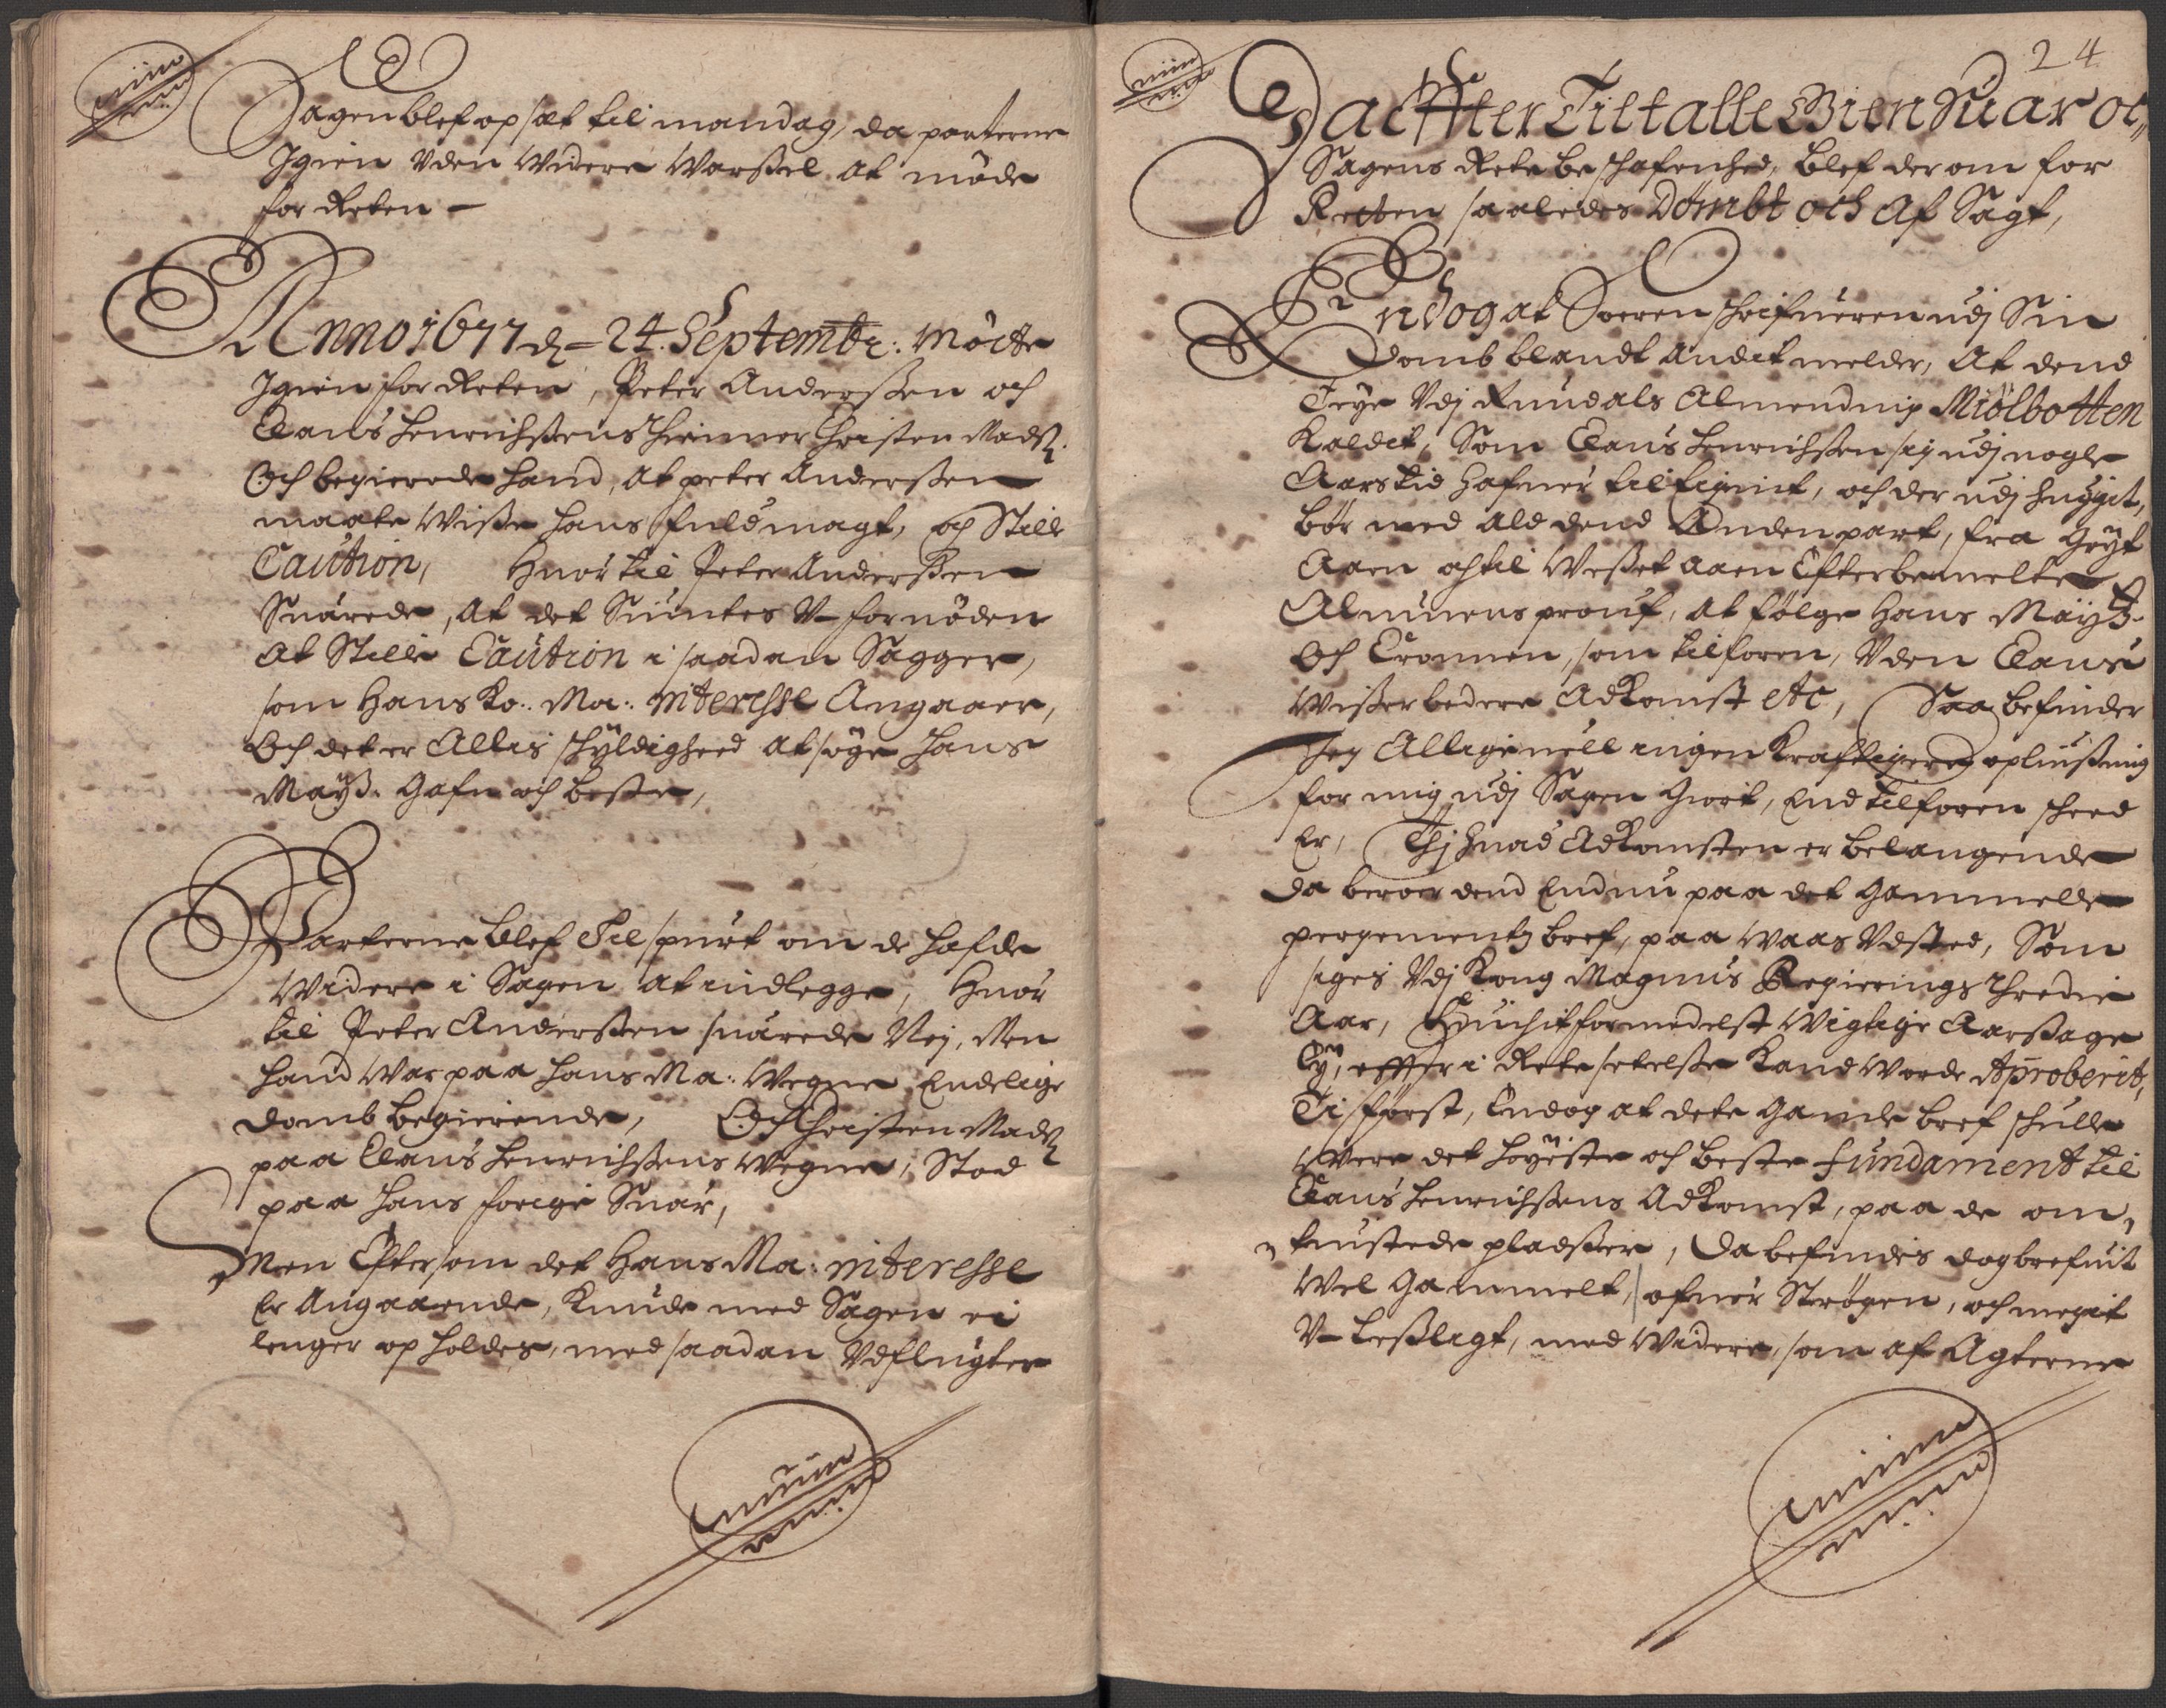 Sagen blef op sat til mandag, da parterne
Igien Vden Widere Warßel at møde
for Reten —
Anno 1677 d. 24. Septembr: Møtte
Igien for Reten, Peter Anderßen och
Claus Henrichßens thienner Christen Madß.
Och begierede hand, at peter Anderßen
maate Wiße hans fuldmagt, och Stille
Caution, Huor til Peter Anderßen
Suarede, at det Siuntes V-fornøden
at Stille Caution i saadan Sagger,
som Hans Ko: Ma: interesse Angaaer,
Och det er Allis schyldigheed at søge Hans
Mayß. Gafn och beste,
Parterne blef Til spurt om de hafde
Widere i Sagen at indlegge, Huor
til Peter Anderßen suarede Nej, Men
hand War paa Hans Ma: Wegne Endelige
domb begierende, Och Christen Madß
paa Claus Henrichßens Wegne, Stod
paa hans forige Suar,
Men Efftersom det Hans Ma: interesse
Er Angaaende, Kunde med Sagen ei
lenger op holdes, med saadan Vdflugter
24
Da Effter Tiltalle Gien Suar oc
Sagens Rete beschafenhed, blef der om for
Retten saaledes Dømbt och Af Sagt,
Endog at Soeren schrifueren udj Sin
Domb blandt Andet melder, At dend
Teye Vdj Rundals Almending Miølbotten
Kaldet, Som Claus Henrichßen sig udj nogle
Aars tid hafuer til Eignit, och der udj huggit,
bør med ald dend Anden part, fra Grýt
Aaen och til Weßet Aaen Efter bemelte
Almuens prouf, at følge Hans Mayß.
Och Cronnen, som tilforen, Vden Claus
Wißer bedere Adkomst etc, Saa befinder
Jeg Alligeuell ingen Krafftigere oplиußning
for mig udj Sagen Giort, End tilforen scheed
Er, Thj huad Adkomsten er belangende
da beroer dend Endnu paa det Gammelle
pergements bref, paa Waas Vdsted, Som
siges Vdj Kong Magnus Regierings thredie
Aar, Huilchit formedelst Wigtige Aarßager
Ey, effter i Rete settelße Kand Worde Aproberit,
Ti først, Endog at dete Gamle bref schulle
Were det høyiste och beste fundament til
Claus Henrichßens Adkomst, paa de om,
tuistede pladßer, Da befindis dog brefuit
Wel Gammelt, ofuer Strøgen, och megit
V-leßligt, med Widere, som af Agterne